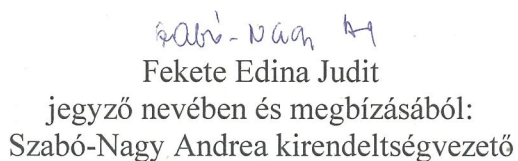 Szabó-Nagy
Fekete Edina Judit
jegyző nevében és megbízásából:
Szabó-Nagy Andrea kirendeltségvezető